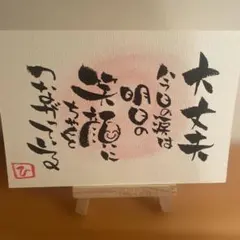 大丈夫
今日の涙は
明日の
笑顔に
ちゃんと
つながっている
ひ